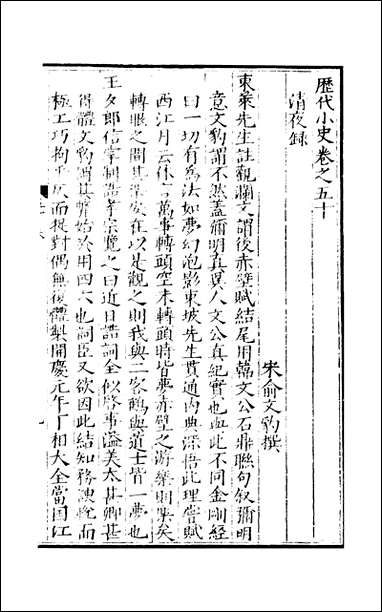 歴代小史卷之五十
清夜錄
宋俞文豹撰
東萊先生註觀瀾文謂後赤壁賦結尾用韓文公石鼎聯句叙彌明
意文豹謂不然蓋彌明真異人文公真紀實也與此不同金剛經
曰一切有為法如夢幻泡影東坡先生貫通內典深悟此理嘗賦
西江月云休言萬事轉頭空未轉頭時皆夢赤壁之游樂則樂矣
轉眼之間其樂安在以是觀之則我與二客鶴與道士皆一夢也
王夕郎信掌制誥孝宗覽之曰近日誥詞全似啓事溢美太甚卿甚
得體文豹謂其弊始於用四六也詞臣又欲因此結知務諛悅而
極工巧拘平仄而捉對偶無復體製開慶元年丁相大全當国江